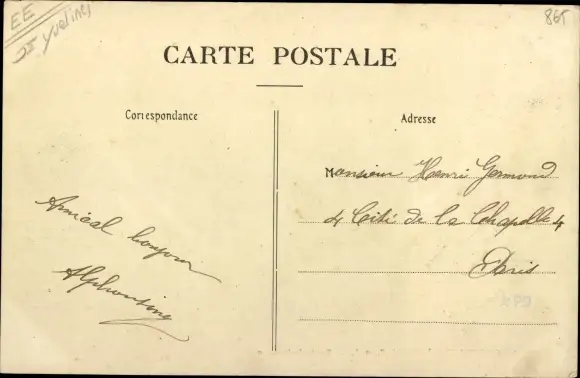 EE
Yvelines
865
CARTE POSTALE
Correspondance
Adresse
Monsieur Henri Germond
4 Cité de la Chapelle 4
Paris
Amical bonjour
Alphonsine